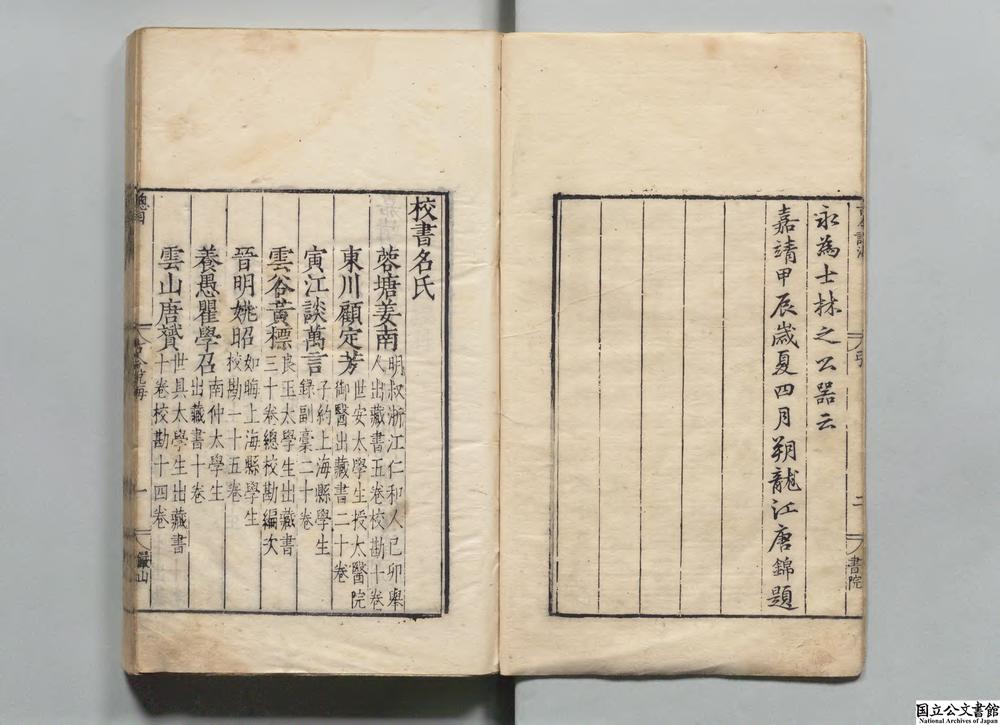 永為士林之公器云
嘉靖甲辰歲夏四月朔龍江唐錦題
引
二
書院
校書名氏
蓉塘姜南明叔浙江仁和人己卯舉
人出藏書五卷校勘十卷
東川顧定芳世安太學生授太醫院
御醫出藏書二十卷
寅江談萬言子約上海縣學生
錄副稾二十卷
雲谷黃標良玉太學生出藏書
三十卷總校勘編次
晉明姚昭如晦上海縣學生
校勘一十五卷
養愚瞿學召南仲太學生
出藏書十卷
雲山唐贇世具太學生出藏書
十卷校勘十四卷
總目
一
儼山
国立公文書館
National Archives of Japan